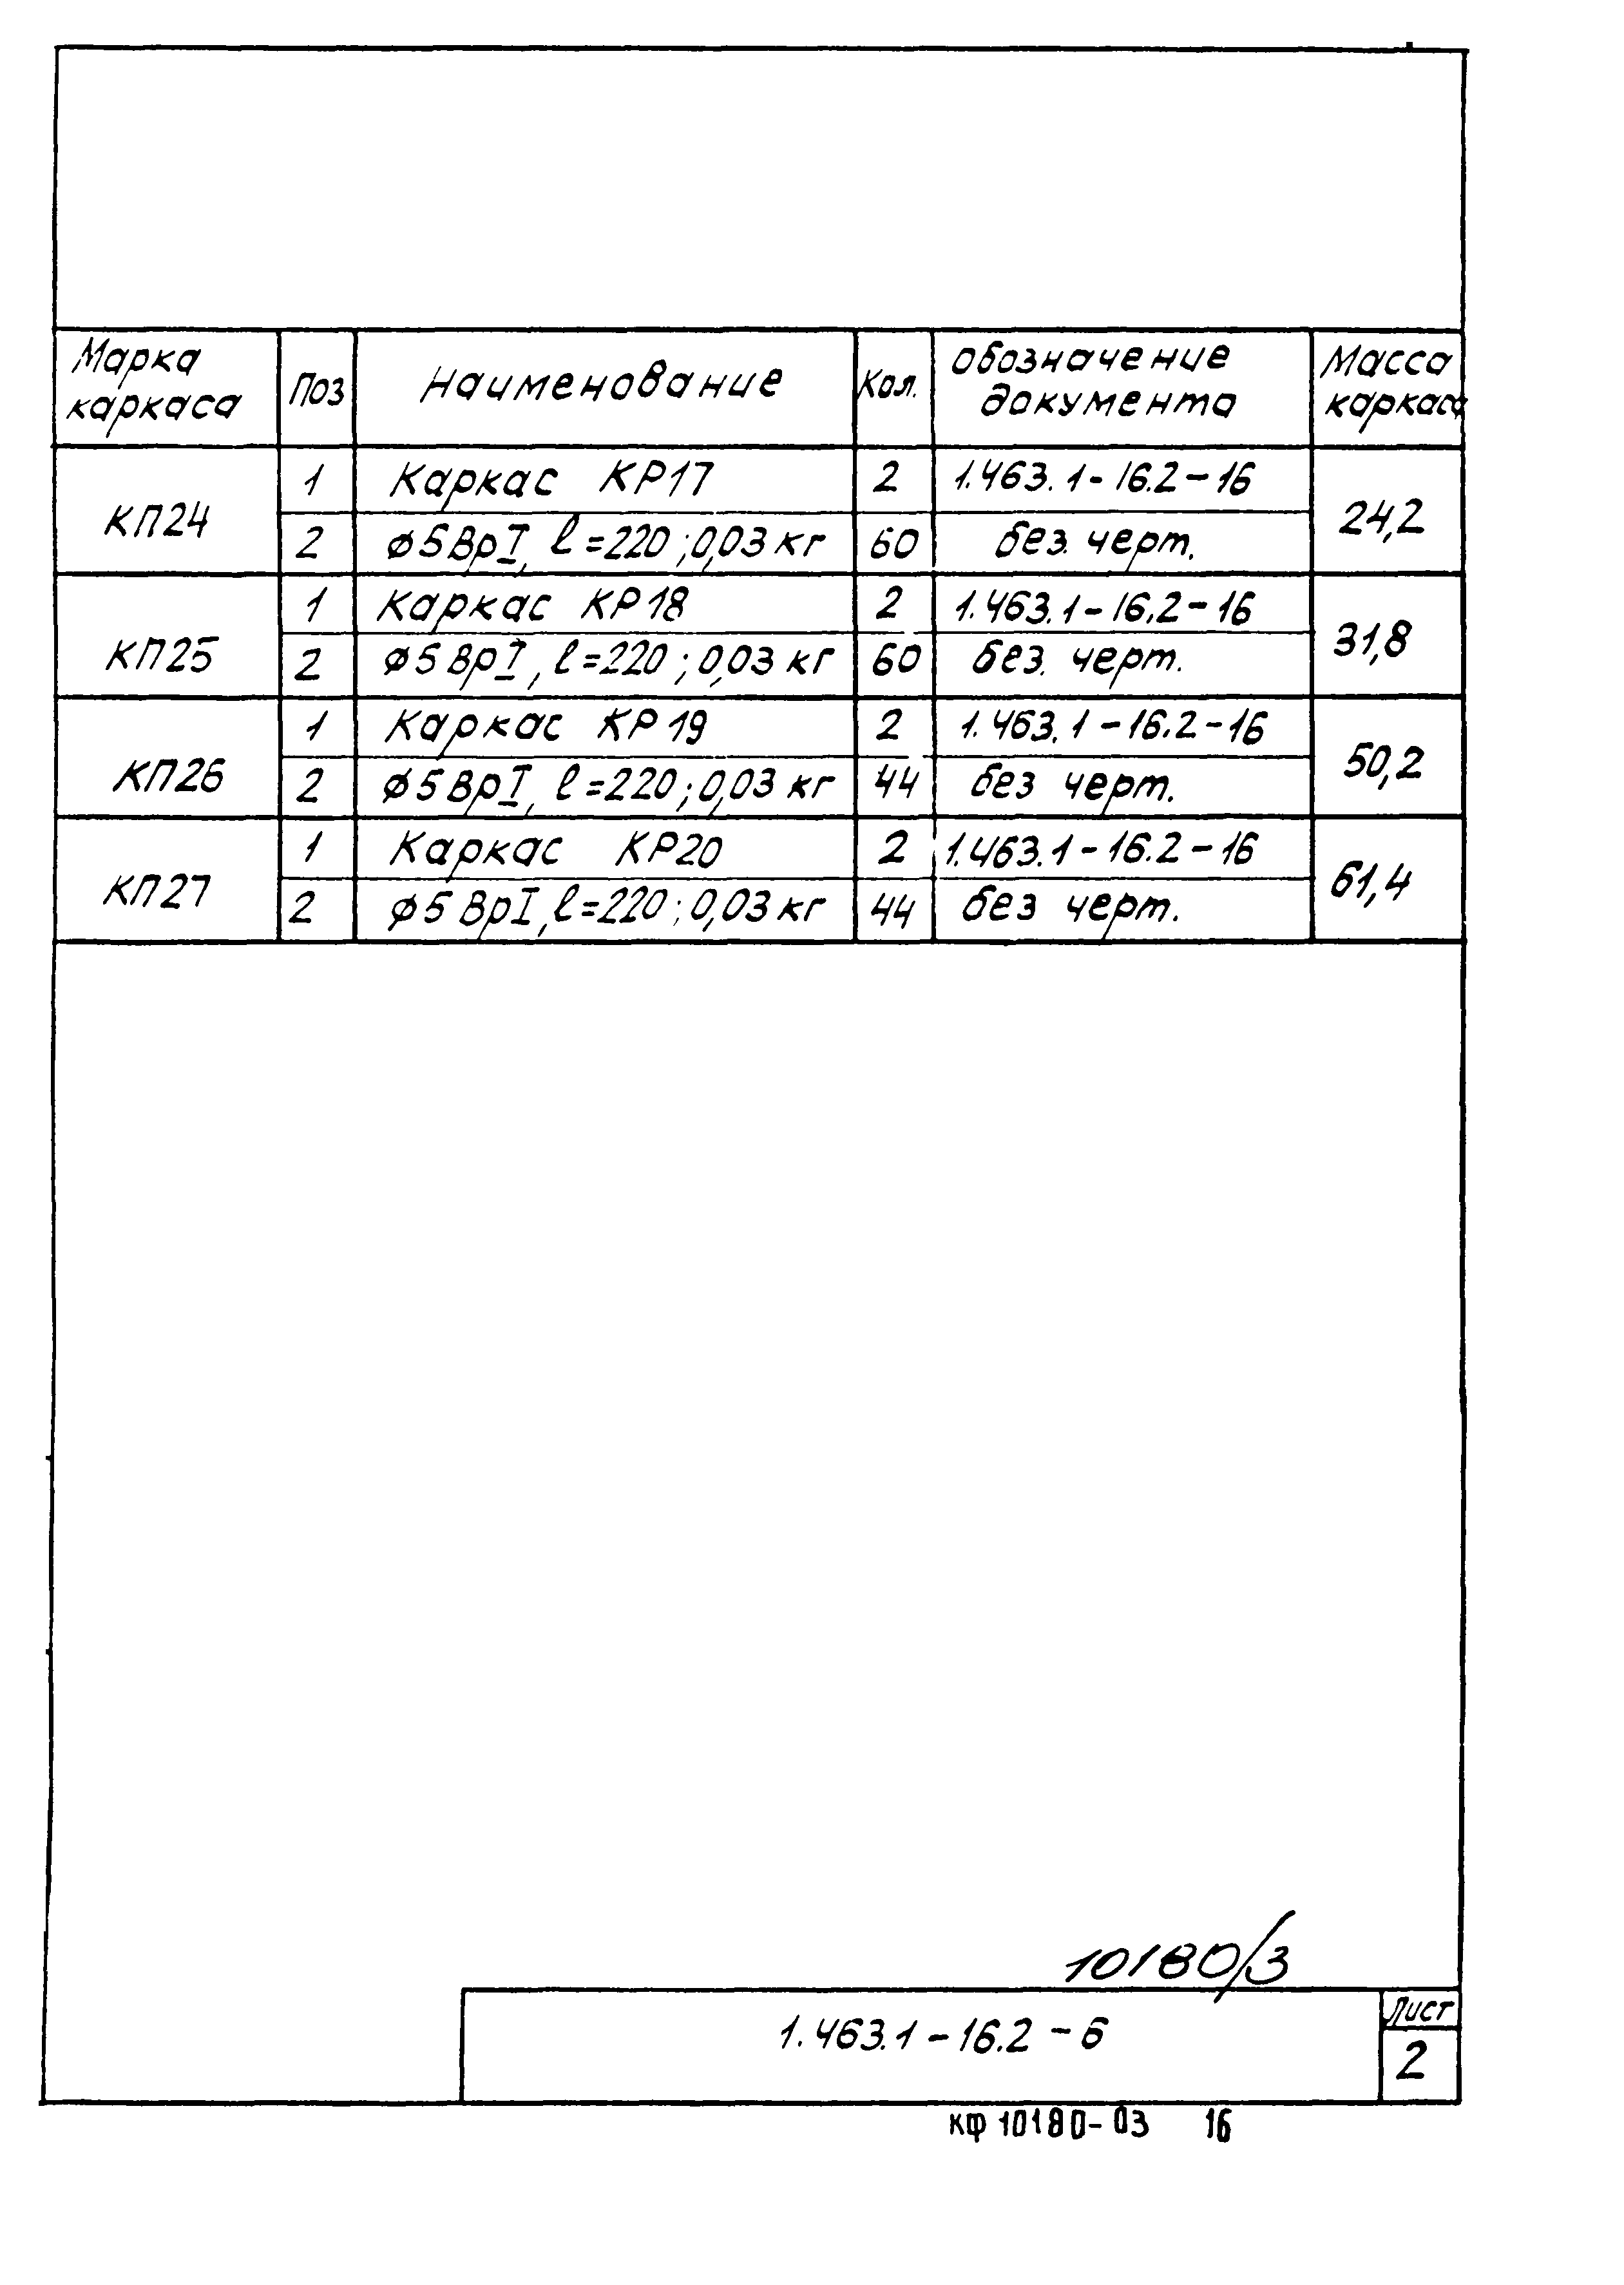 Марка каркаса Поз Наименование Кол. обозначение документа Масса каркаса
КП24 1 Каркас КР17 2 1.463.1-16.2-16 24,2
2 ⌀5ВрI, ℓ=220; 0,03 кг 60 без. черт.
КП25 1 Каркас КР18 2 1.463.1-16.2-16 31,8
2 ⌀5ВрI, ℓ=220; 0,03 кг 60 без. черт.
КП26 1 Каркас КР19 2 1.463.1-16.2-16 50,2
2 ⌀5ВрI, ℓ=220; 0,03 кг 44 без черт.
КП27 1 Каркас КР20 2 1.463.1-16.2-16 61,4
2 ⌀5ВрI, ℓ=220; 0,03 кг 44 без черт.
10180/3
1.463.1-16.2-6
Лист
2
кф 10180-03 16